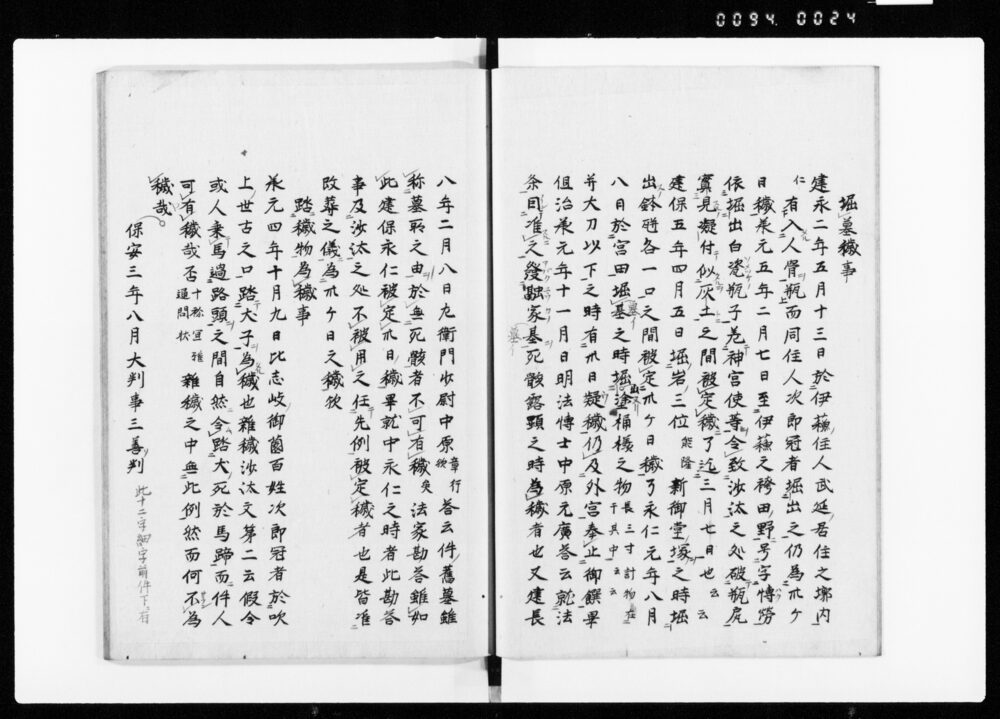 0094.0024
堀墓穢事
建永二年五月十三日於伊蘓住人武延居住之墎内
仁有入人骨瓶而同住人次郎冠者堀出之仍為卅ケ
日穢兼元五年二月七日至伊蘓之袴田野号字慱勞
依堀出白瓷瓶子羌神宮使等令致沙汰之処破瓶虎
實見凝付似灰土之間被定穢了迄三月七日也云云
建保五年四月五日堀岩三位能隆新御堂塚之時堀
出鉢瓶各一口之間被定卅ケ日穢了永仁元年八月
八日於宮田堀墓之時堀出塗桶様之物長三寸計物在于其中云云
并大刀以下之時有卅日凝穢仍及外宮奉止御饌畢
但治兼元年十一月日明法慱士中原元廣荅云就法
条目准之發融家墓死骸露顕之時為穢者也又建長
八年二月八日左衛門少尉中原章行欤荅云件舊墓雖
称墓耴之由於無死骸者不可有穢矣法家勘荅雖如
此建保永仁被定卅日穢畢就中永仁之時者此勘荅
事及沙汰之処不被用之任先例被定穢者也是皆准
改葬之儀為卅ケ日之穢欤
踏穢物為穢事
兼元四年十月九日比志岐御薗百姓次郎冠者於吹
上世古之口踏犬子為穢也雜穢沙汰文第二云假令
或人乗馬過路頭之間自然令踏犬死於馬蹄而件人
可有穢哉否十称宜雅通問状雜穢之中無此例然而何不為
穢哉
保安三年八月大判事三善判
此十二字細字前件下有